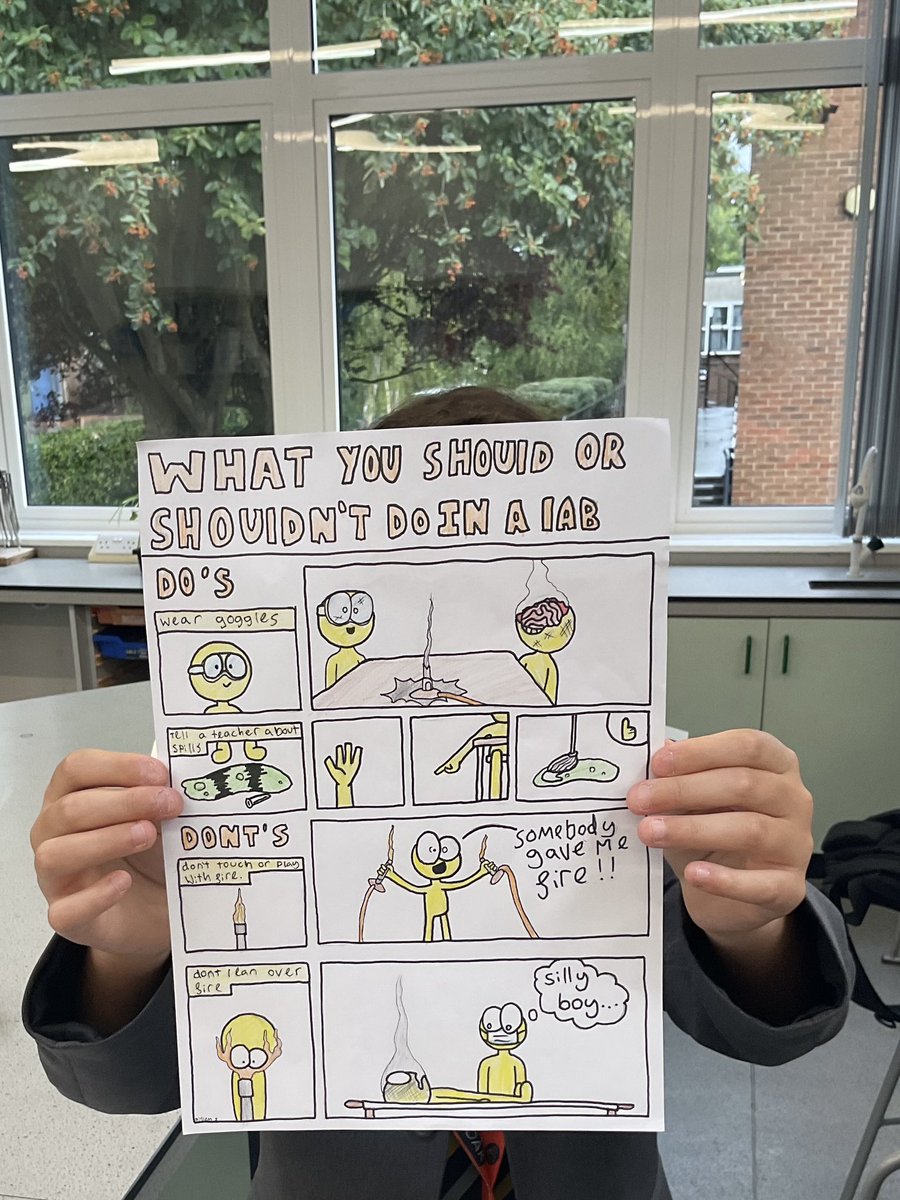 WHAT YOU SHOUlD OR
SHOUlDN'T DO IN A lAB
DO'S
wear goggles
Tell a teacher about
spills
DONT'S
don't touch or play
with fire.
SOMEBODY
gave ME
fire!!
dont lean over
fire
silly
boy...